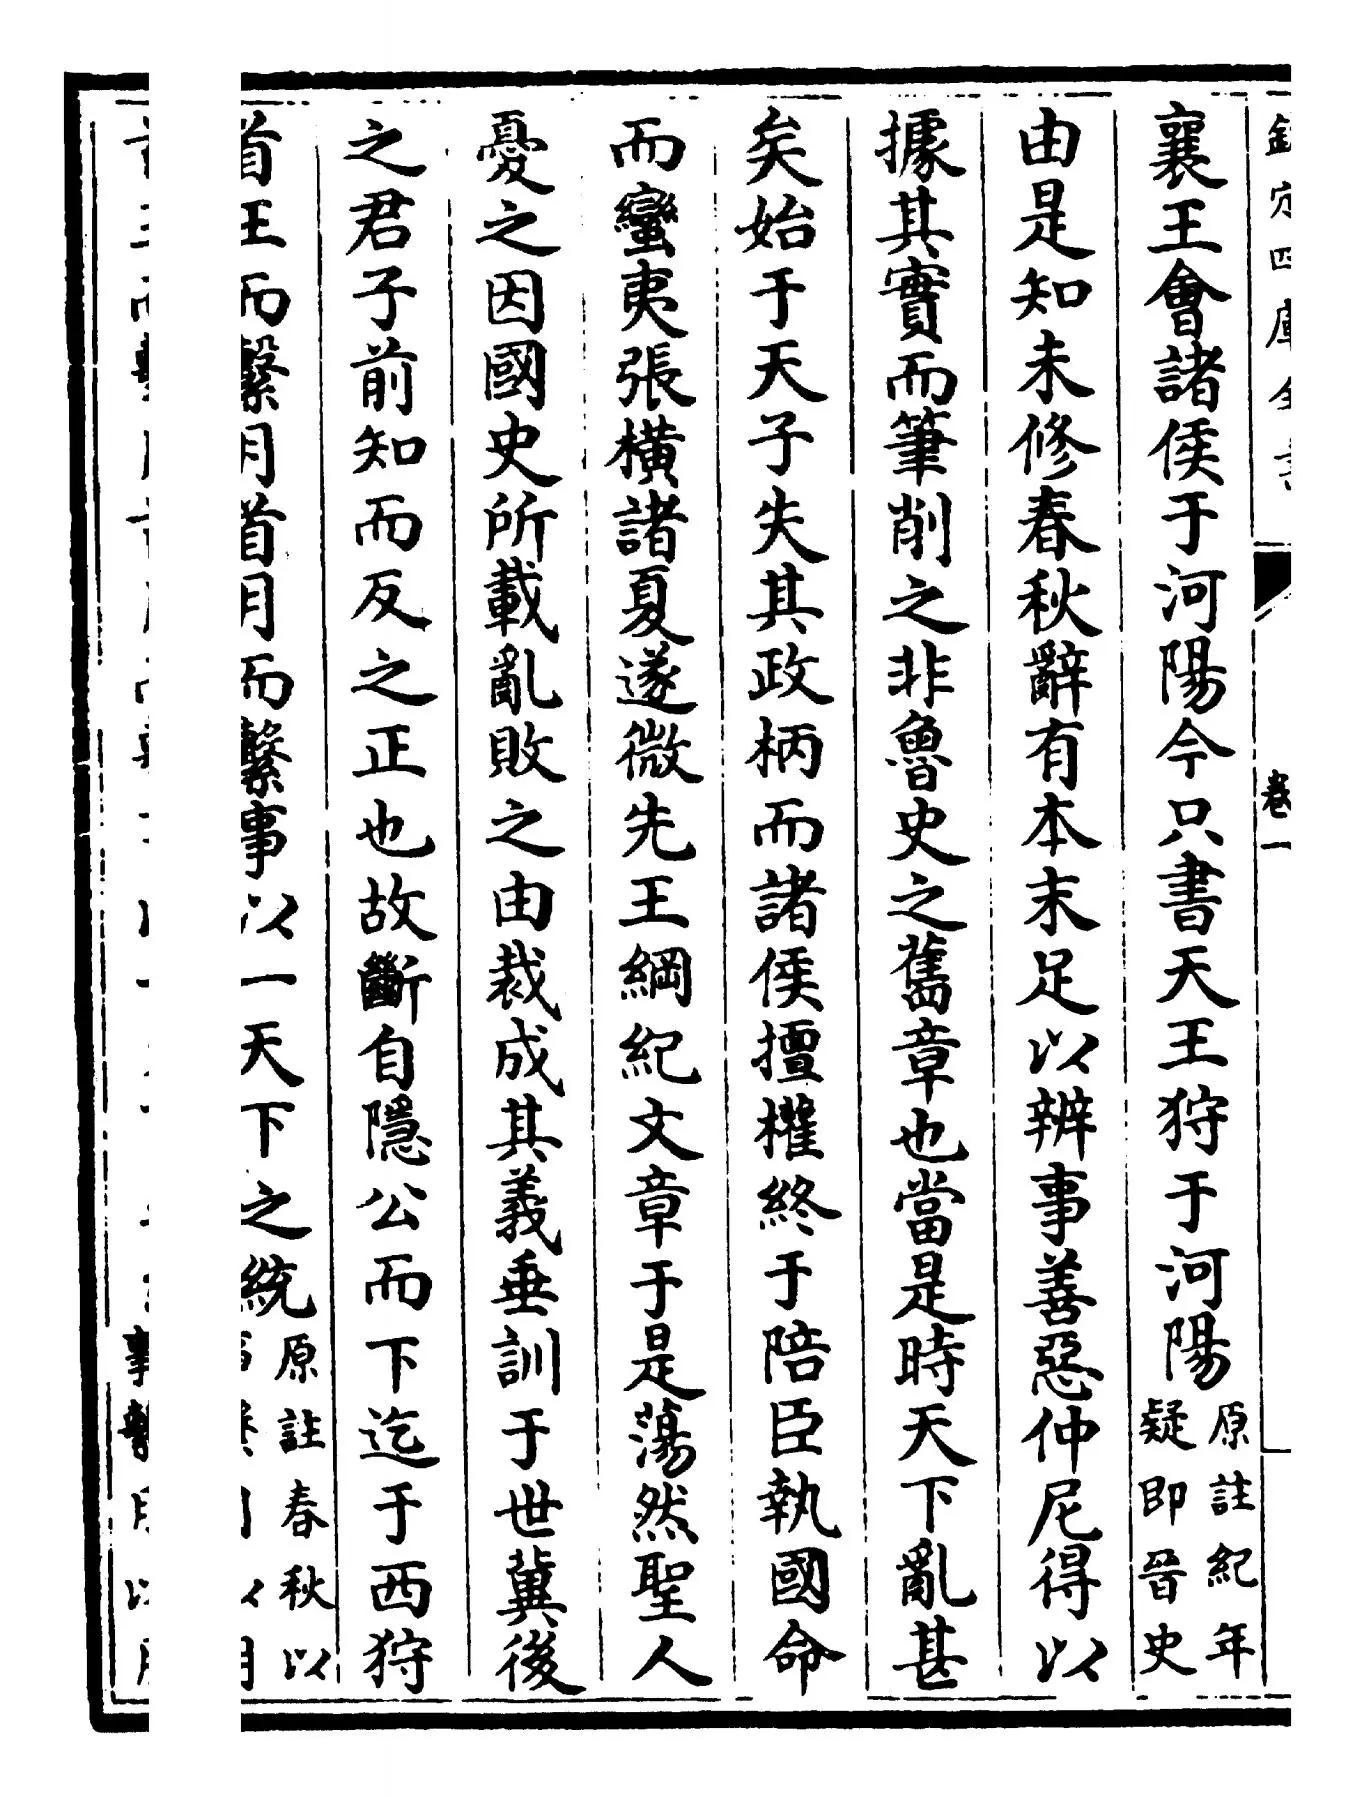 欽定四庫全書
卷一
襄王會諸侯于河陽今只書天王狩于河陽原註紀年疑即晉史
由是知未修春秋辭有本末足以辨事善惡仲尼得以
據其實而筆削之非魯史之舊章也當是時天下亂甚
矣始于天子失其政柄而諸侯擅權終于陪臣執國命
而蠻夷張橫諸夏遂微先王綱紀文章于是蕩然聖人
憂之因國史所載亂敗之由裁成其義垂訓于世冀後
之君子前知而反之正也故斷自隱公而下迄于西狩
首王而繫月首月而繫事以一天下之統原註春秋以